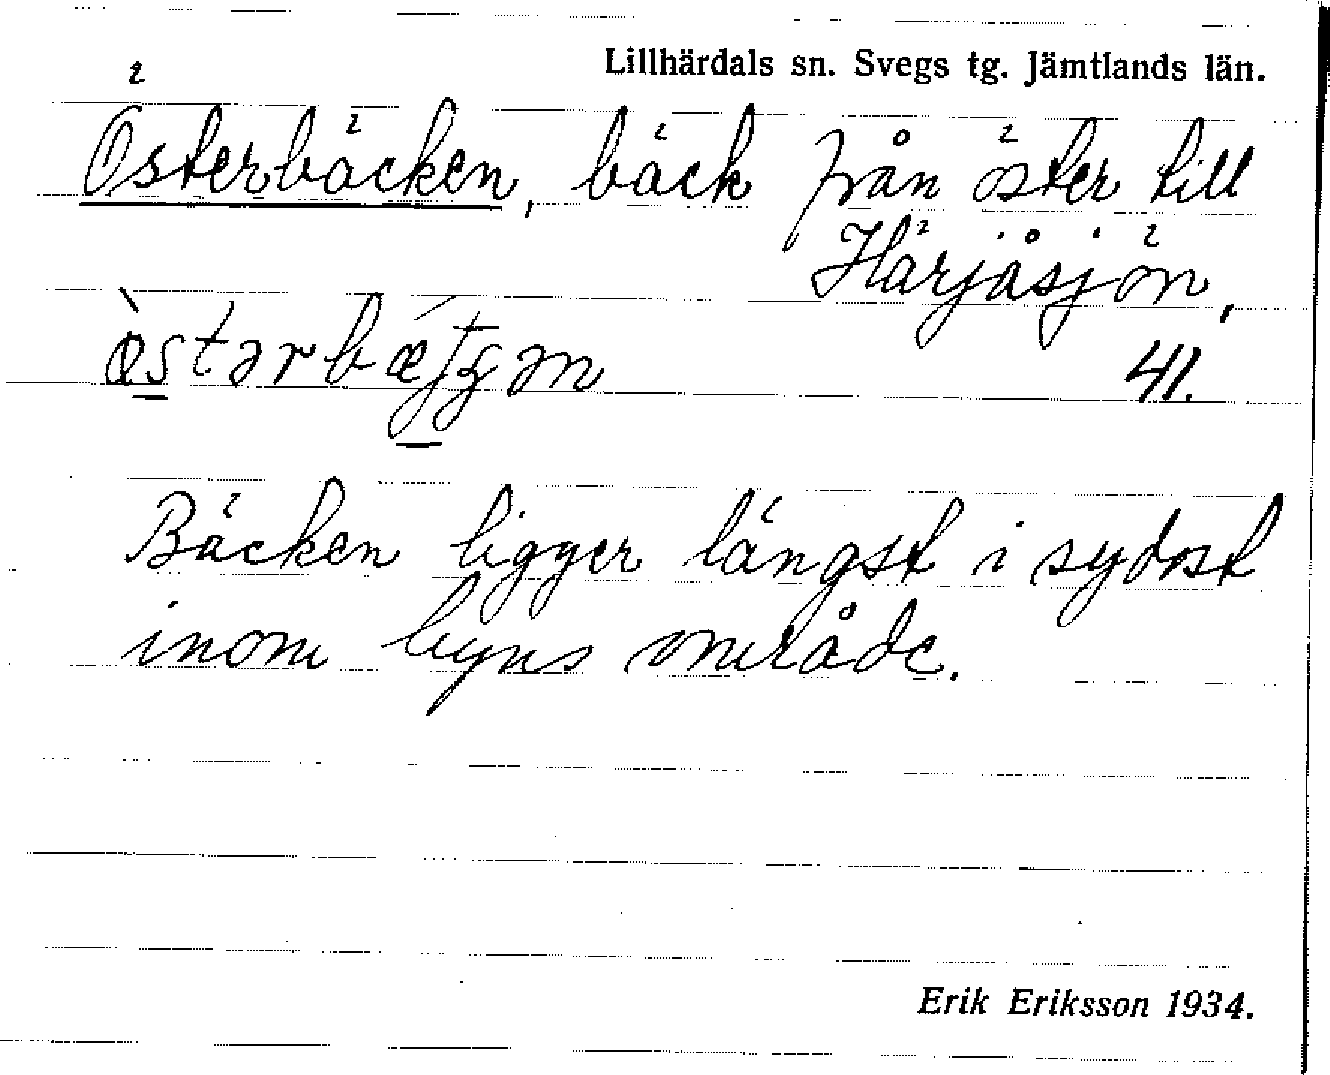 Lillhärdals sn. Svegs tg. Jämtlands län.
Österbäcken, bäck från öster till
Härjåsjön,
41.
Bäcken ligger längst i sydost
inom byns område.
Erik Eriksson 1934.